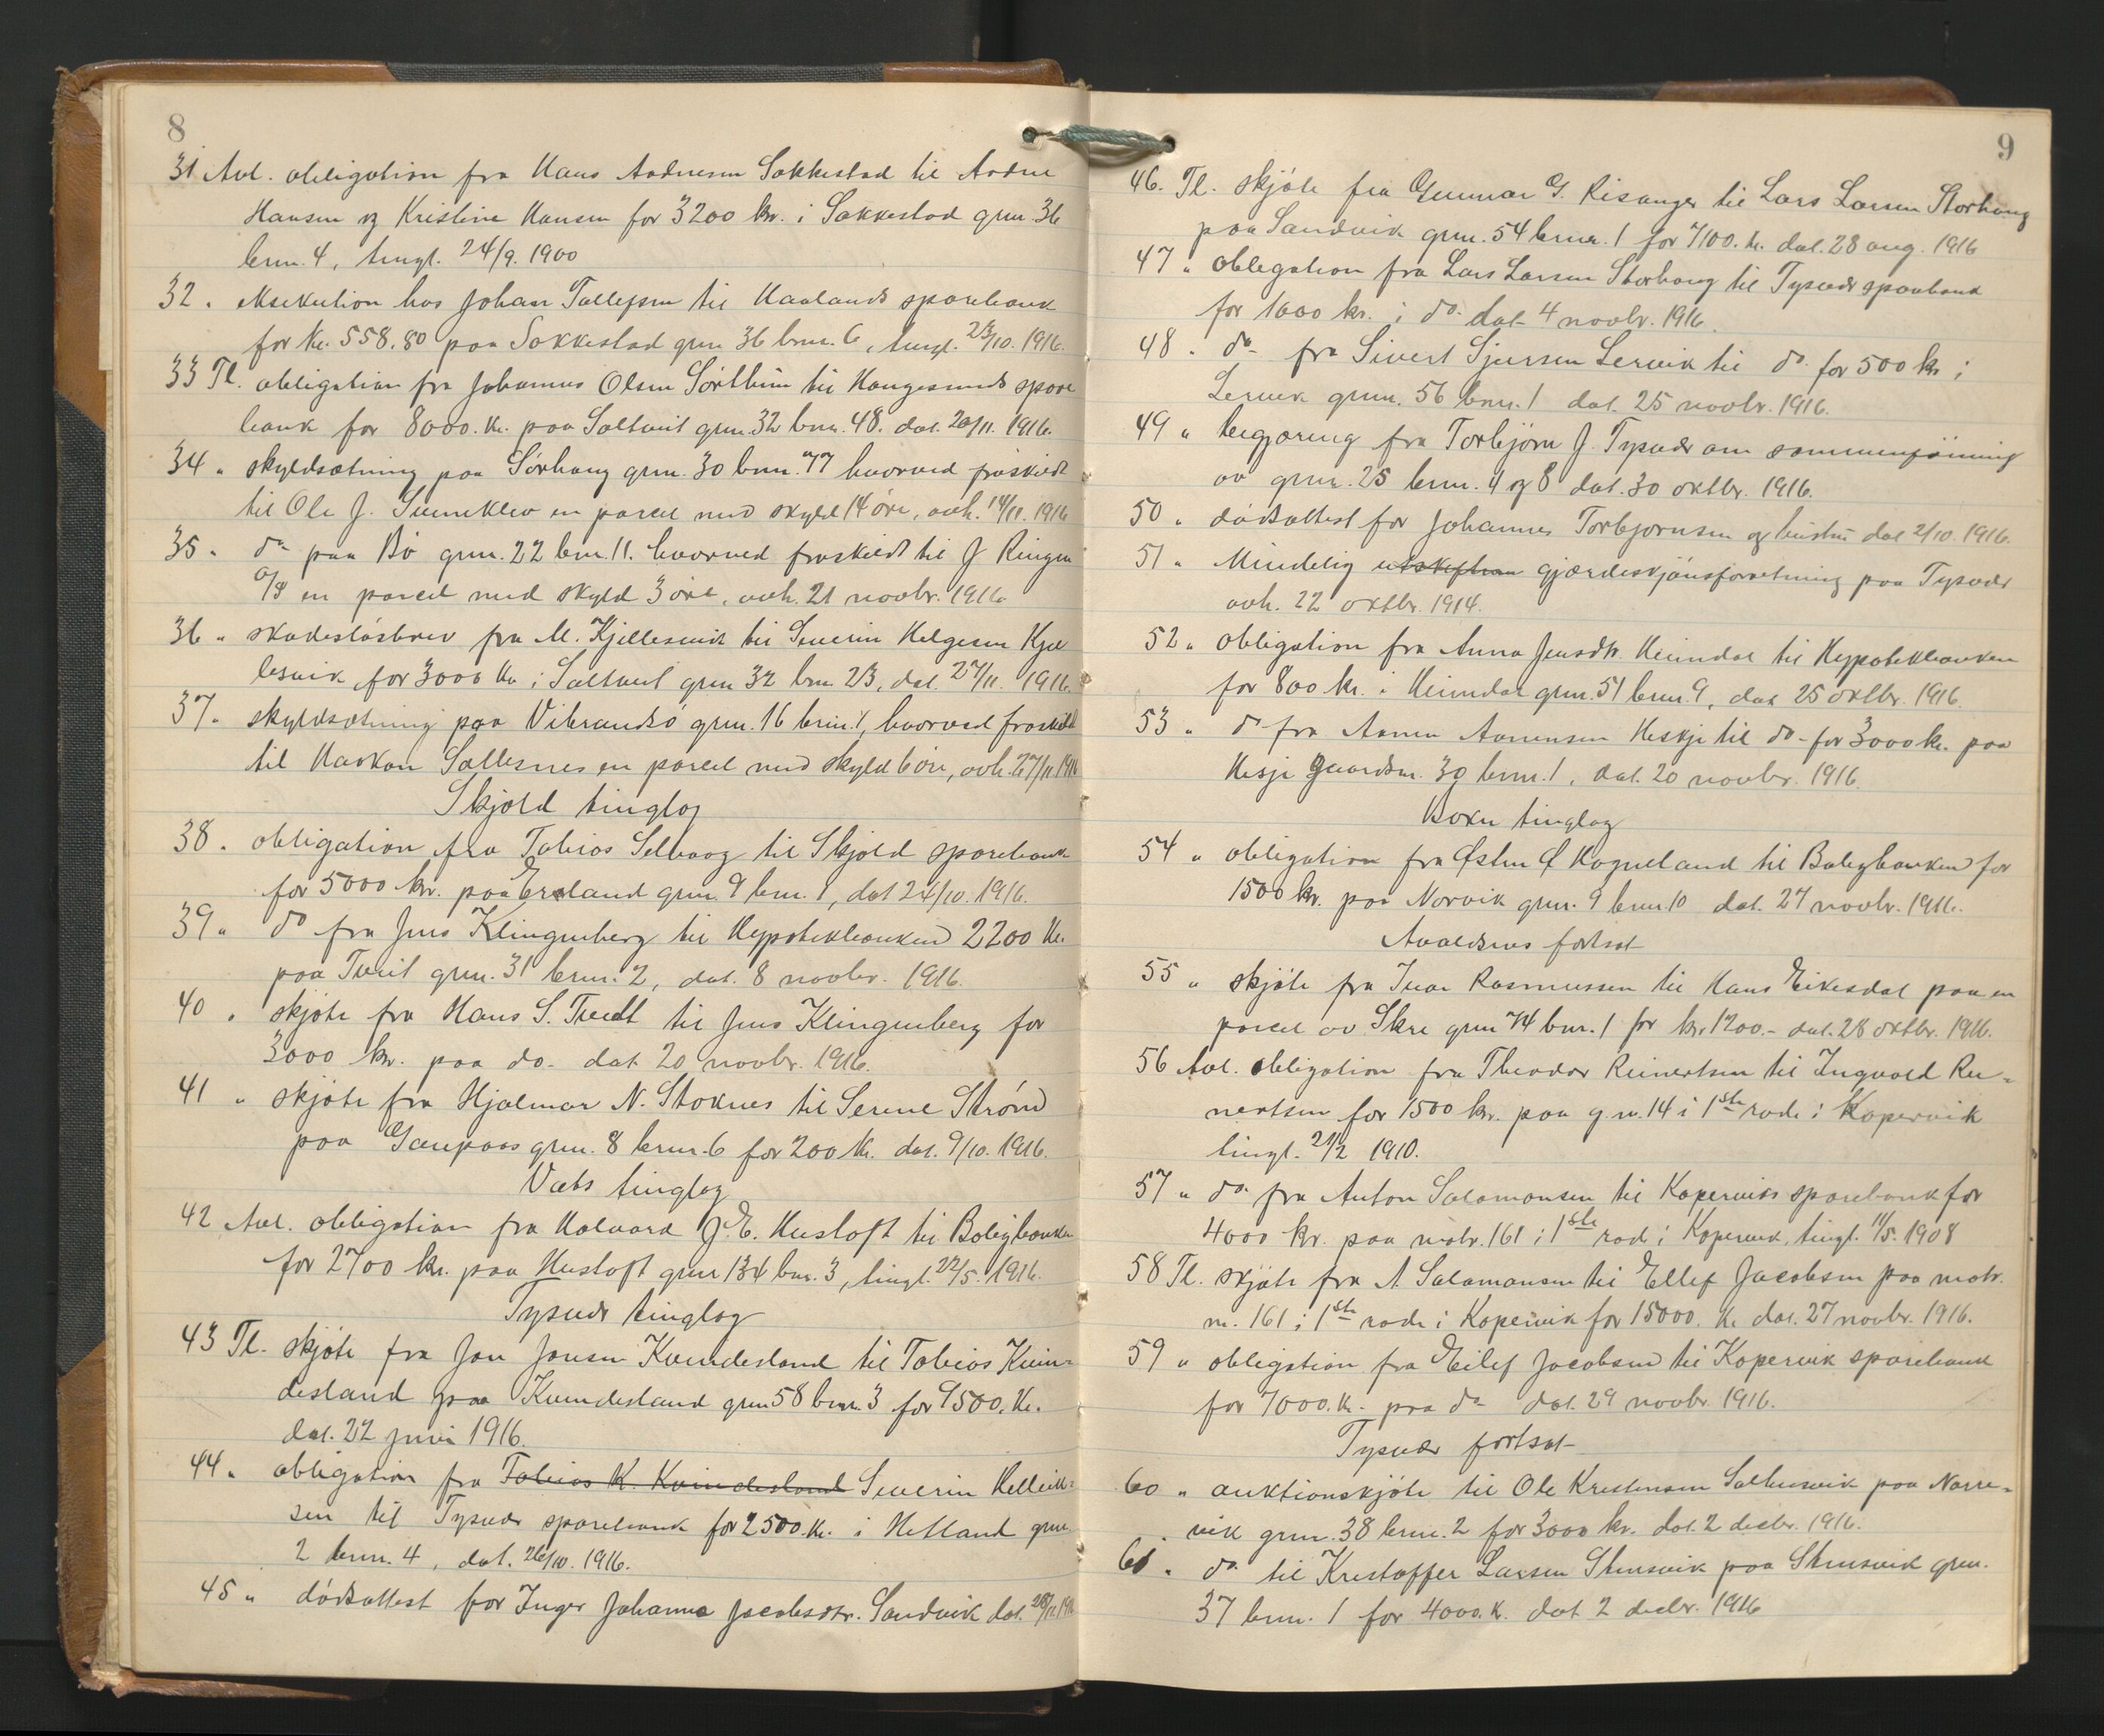 8
31 Avl. obligation fra Hans Aadnesen Sakkestad til Aadne
Hansen og Kristine Hansen for 3200 kr. i Sakkestad grnr. 36
brnr. 4, tingl. 24/9. 1900
32 „ eksekution hos Johan Tollefsen til Haalands sparebank
for kr. 558.80 paa Sakkestad grnr 36 brnr. 6, tingl. 23/10. 1916.
33 Tl. obligation fra Johannes Olsen Sörtheim til Haugesunds spare
bank for 8000. kr. paa Saltveit grnr. 32 brnr. 48. dat. 20/11. 1916.
34 „ skyldsætning paa Sørhaug grnr. 30 brnr. 77 hvorved fraskildt
til Ole J. en parcel med skyld 14 øre, avh. 14/11. 1916
35 „ do paa Bø grnr. 22 brnr. 11. hvorved fraskildt til J Ringen
a/s en parcel med skyld 3 øre, avh. 21 novbr. 1916
36 „ skadesløsbrev fra M. Kjellesvik til Severin Helgesen Kjel
lesvik for 3000 kr i Saltveit grnr 32 brnr 23, dat. 27/11. 1916.
37 „ skyldsætning paa Vibrandsø grnr. 16 brnr. 1, hvorved fraskildt
til Haakon Sallesnes en parcel med skyld 6 øre, avh. 27/11 1916
Skjold tinglag
38 „ obligation fra Tobias Selvaag til Skjold sparebank
for 5000 kr. paa Erland grnr. 9 brnr. 1, dat 24/10. 1916.
39 „ do fra Jens Klingenberg til Hypotekbanken 2200 kr.
paa Tveit grnr. 31 brnr. 2, dat. 8 novbr. 1916.
40 „ skjøte fra Hans S. Tvedt til Jens Klingenberg for
3000 kr. paa do- dat 20 novbr. 1916.
41 „ skjøte fra Hjalmar N. Stoknes til Serine Strønd
paa Gaupaas grnr. 8 brnr. 6 for 200 kr. dat. 9/10. 1916.
Vats tinglag
42 Avl. obligation fra Halvard J. E. Hustoft til Boligbanken
for 2700 kr. paa Hustoft grnr 134 bnr. 3, tingl. 22/5. 1916.
Tysvær tinglag
43 Tl. skjøte fra Jon Jonsen Kvindesland til Tobias Kvin-
desland paa Kvindesland grnr 58 brnr. 3 for 9500. kr.
dat. 22 juni 1916.
44 „ obligation fra Tobias K. Kvindesland Severin Helliek-
sen til Tysvær sparebank for 2500. kr. i Hetland grnr
2 brnr. 4, dat. 26/10. 1916.
45 „ dødsattest for Inger Johanna Jacobsdtr. Sandvik dat. 28/11 1916
9
46. Tl. skjøte fra Gunnar G. Risanger til Lars Larsen Storhaug
paa Sandvik grnr. 54 brnr. 1 for 7100. kr. dat. 28 aug. 1916
47 „ obligation fra Lars Larsen Storhaug til Tysvær sparebank
for 1000 kr. i do. dat 4 novbr. 1916.
48 „ do- fra Sivert Sjursen Lervik til do. for 500 kr i
Lervik grnr. 56 brnr. 1 dat. 25 novbr. 1916.
49 „ begjæring fra Torbjørn J. Tysvær om sammenføining
av grnr. 25 brnr. 4 og 8 dat. 30 oktbr. 1916.
50 „ dødsattest for Johannes Torbjørnsen og hustru dat 2/10. 1916.
51 „ Mindelig utskiftnin gjærdeskjønsforretning paa Tysvær
avh. 22 oktbr. 1914.
52 „ obligation fra Anna Jensdtr. Heimdal til Hypotekbanken
for 800 kr. i Heimdal grnr. 51 brnr. 9, dat 25 oktbr. 1916.
53 „ do fra Aamen Aanensen Heskje til do- for 3000 kr. paa
Hesje gaardsnr. 30 brnr. 1, dat. 20 novbr. 1916.
Bokn tinglag
54 „ obligation fra Østen Ø Hogneland til Boligbanken for
1500 kr. paa Norvik grnr. 9 brnr. 10 dat. 27 novbr. 1916.
Avaldsnes fortsat
55 „ skjøte fra Ivar Rasmussen til Hans Eikesdal paa en
parcel av Skre grnr 74 bnr. 1 for kr. 1200.- dat. 28 oktbr. 1916.
56 Avl. obligation fra Theodor Reinertsen til Ingvald Rei-
nertsen for 1500 kr. paa g. nr. 14 i 1ste rode i Kopervik
tingl. 21/2 1910.
57 „ do. fra Anton Salamonsen til Koperviks sparebank for
4000 kr. paa matr. 161 i 1ste rod. i Kopervik, tingl. 11/5. 1908
58 Tl. skjøte fra A Salamonsen til Ellef Jacobsen paa matr.
nr. 161 i 1ste rode i Kopervik for 15000. kr dat. 27 novbr. 1916.
59 „ obligation fra Eilef Jacobsen til Kopervik sparebank
for 7000. kr. paa do dat. 29 novbr 1916.
Tysvær fortsat
60 „ auktionskjøte til Ole Kristensen Salhusvik paa Narre-
vik grnr. 38 brnr. 2 for 3000 kr. dat. 2 decbr. 1916.
61 „ do. til Kristoffer Larsen Stensvik paa Stensvik grnr.
37 brnr. 1 for 4000. kr. dat 2 decbr. 1916